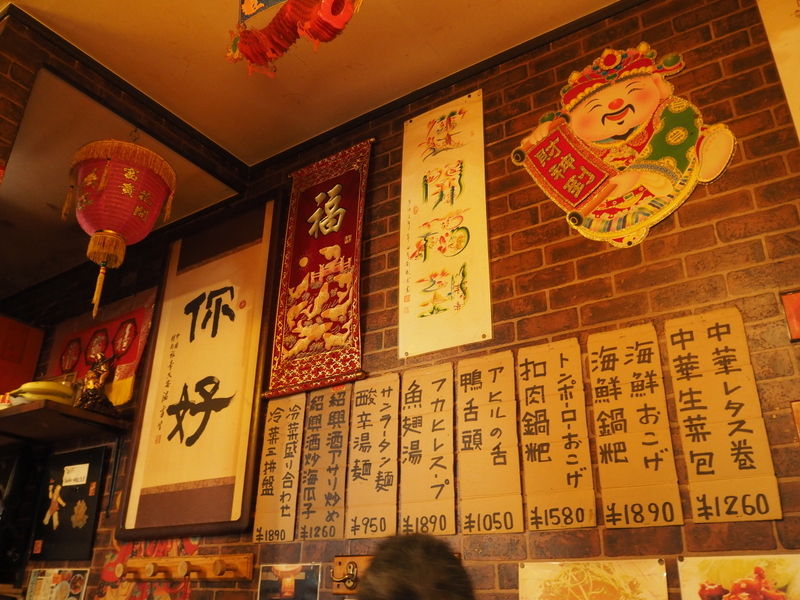 富貴
花開
你好
福
花開福禄
財神到
中華レタス巻
中華生菜包
¥1260
海鮮おこげ
海鮮鍋粑
¥1890
トンポーローおこげ
扣肉鍋粑
¥1580
アヒルの舌
鴨舌頭
¥1050
フカヒレスープ
魚翅湯
¥1890
サンラータン麺
酸辛湯麺
¥950
紹興酒アサリ炒め
紹興酒炒海瓜子
¥1260
冷菜盛り合わせ
冷菜三拼盤
¥1890